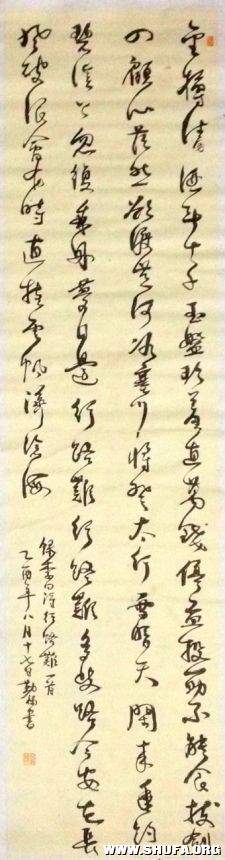 金樽清酒斗十千玉盤珍羞直萬錢停盃投筯不能食拔劍
四顧心茫然欲渡黃河冰塞川將登太行雪暗天閑來垂釣
碧溪上忽復乘舟夢日邊行路難行路難多歧路今安在長
風破浪會有時直挂雲帆濟滄海
錄李白詩行路難一首
乙酉年八月十七日勤書
WWW.SHUFA.ORG